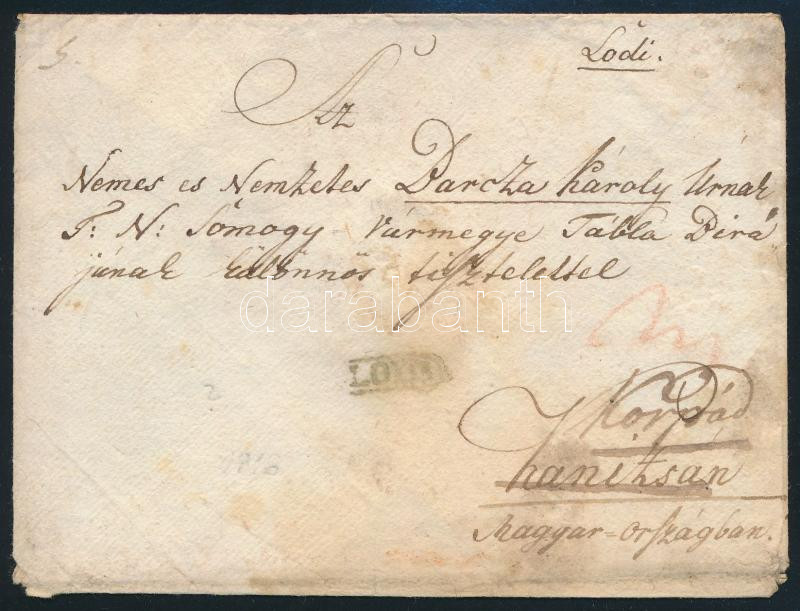 Lodi.
Az
Nemes es Nemzetes Darcza Károly Úrnak
T: N: Somogy Vármegye Tábla Birá
jának külömnös tisztelettel
darabanth
LODI
Korpád
kanizsán
Magyar=Országban.